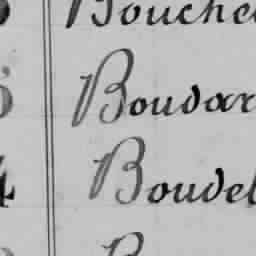 Bouche
Boudar
4 Boudel